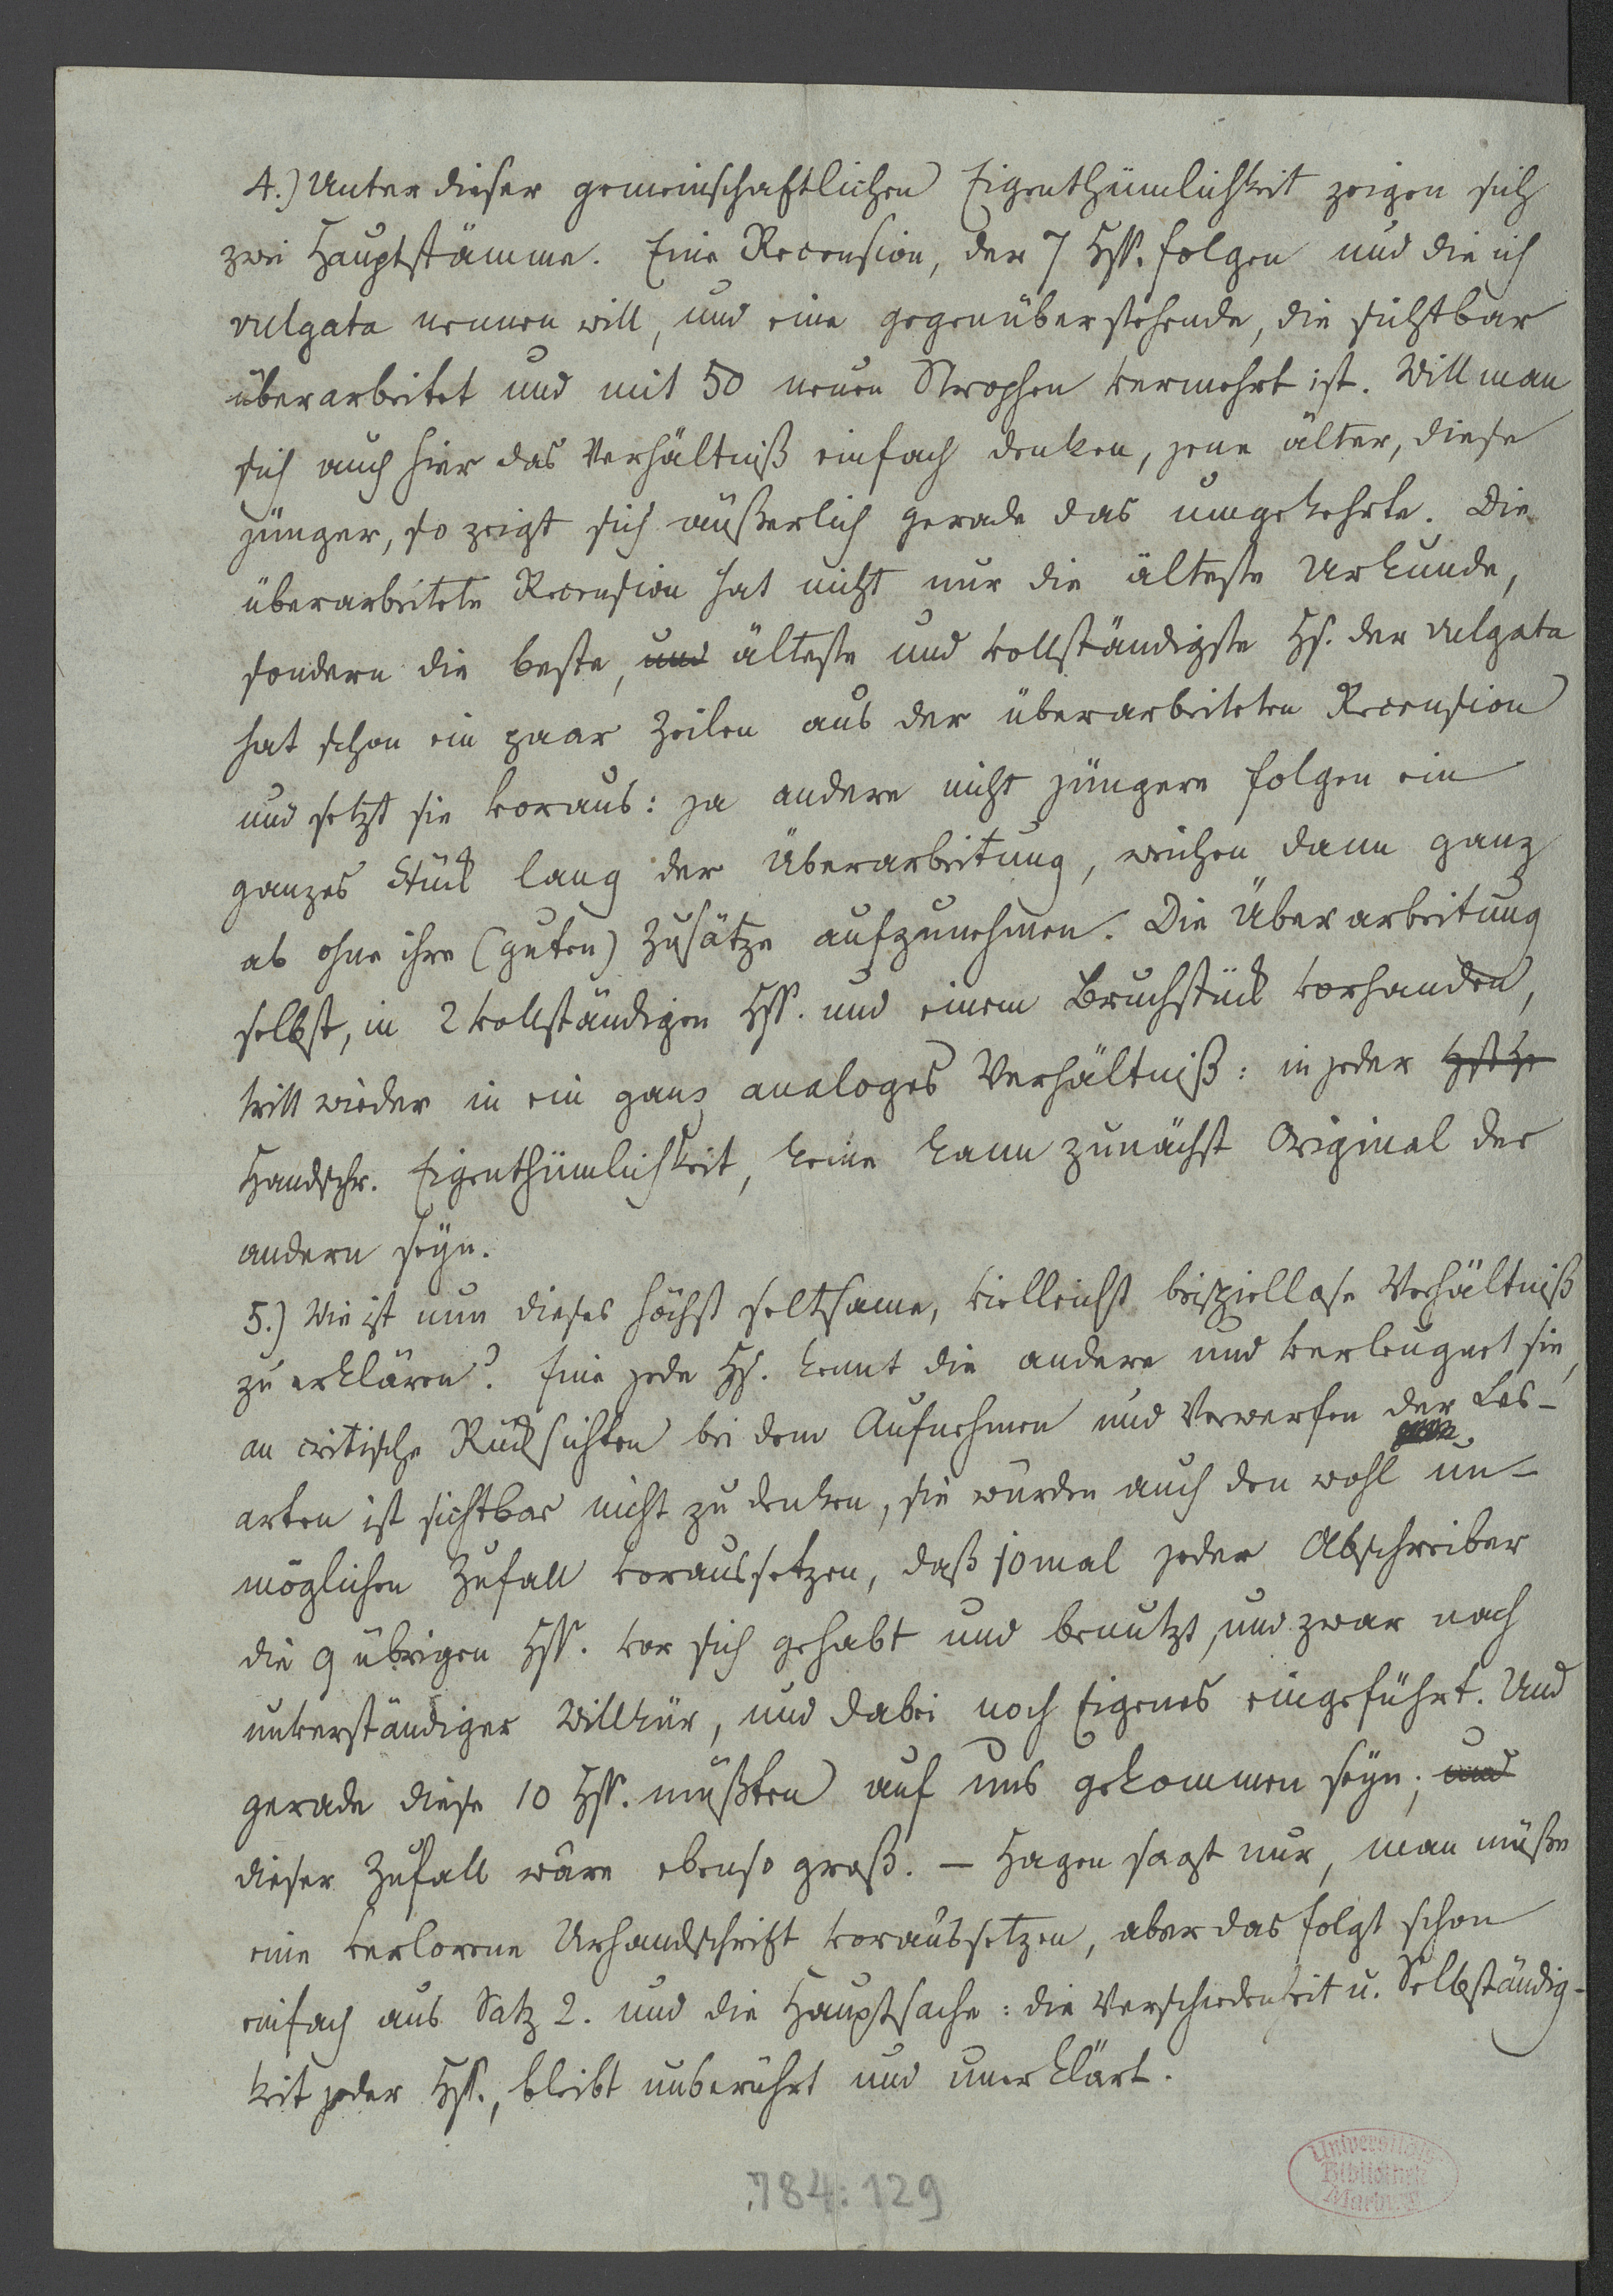 4.) Unter dieser gemeinschaftlichen Eigenthümlichkeit zeigen sich
zwei Hauptstämme. Eine Recension, der 7 Hss. folgen und die ich
vulgata nennen will, und eine gegenüberstehende, die sichtbar
überarbeitet und mit 50 neuen Strophen vermehrt ist. Will man
sich auch hier das Verhältniß einfach denken, jene älter, diese
jünger, so zeigt sich äußerlich gerade das umgekehrte. Die
überarbeitete Recension hat nicht nur die älteste Urkunde,
sondern die beste, und älteste und vollständigste Hs. der vulgata
hat schon ein paar Zeilen aus der überarbeiteten Recension
und setzt sie voraus: ja andere nicht jüngere folgen ein
ganzes Stück lang der Überarbeitung, weichen dann ganz
ab ohne ihre (guten) Zusätze aufzunehmen. Die Überarbeitung
selbst, in 2 vollständigen Hss. und einem Bruchstück vorhanden,
tritt wieder in ein ganz analoges Verhältniß: in jeder
Handschr. Eigenthümlichkeit, keine kann zunächst Original der
andern seyn.
5.) Wie ist nun dieses höchst seltsame, vielleicht beispiellose Verhältniß
zu erklären? Eine jede Hs. kennt die andere und verleugnet sie,
an critische Rücksichten bei dem Aufnehmen und Verwerfen der Les-
arten ist sichtbar nicht zu denken, sie würden auch den wohl un-
möglichen Zufall voraussetzen, daß 10mal jeder Abschreiber
die 9 übrigen Hss. vor sich gehabt und benutzt, und zwar nach
unverständiger Willkür, und dabei noch Eigenes eingeführt. Und
gerade diese 10 Hss. müßten auf uns gekommen seyn; und
dieser Zufall wäre ebenso groß. – Hagen sagt nur, man müße
eine verlorene Urhandschrift voraussetzen, aber das folgt schon
einfach aus Satz 2. und die Hauptsache: die Verschiedenheit u. Selbständig-
keit jeder Hs., bleibt unberührt und unerklärt.
784:129
Universitäts
Bibliothek
Marburg